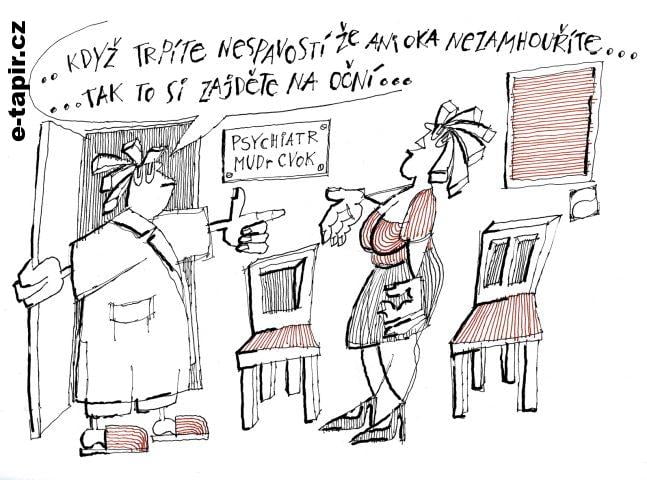 ..KDYŽ TRPÍTE NESPAVOSTÍ ŽE ANI OKA NEZAMHOUŘÍTE...
...TAK TO SI ZAJDĚTE NA OČNÍ...
PSYCHIATR
MUDr CVOK
e-tapir.cz